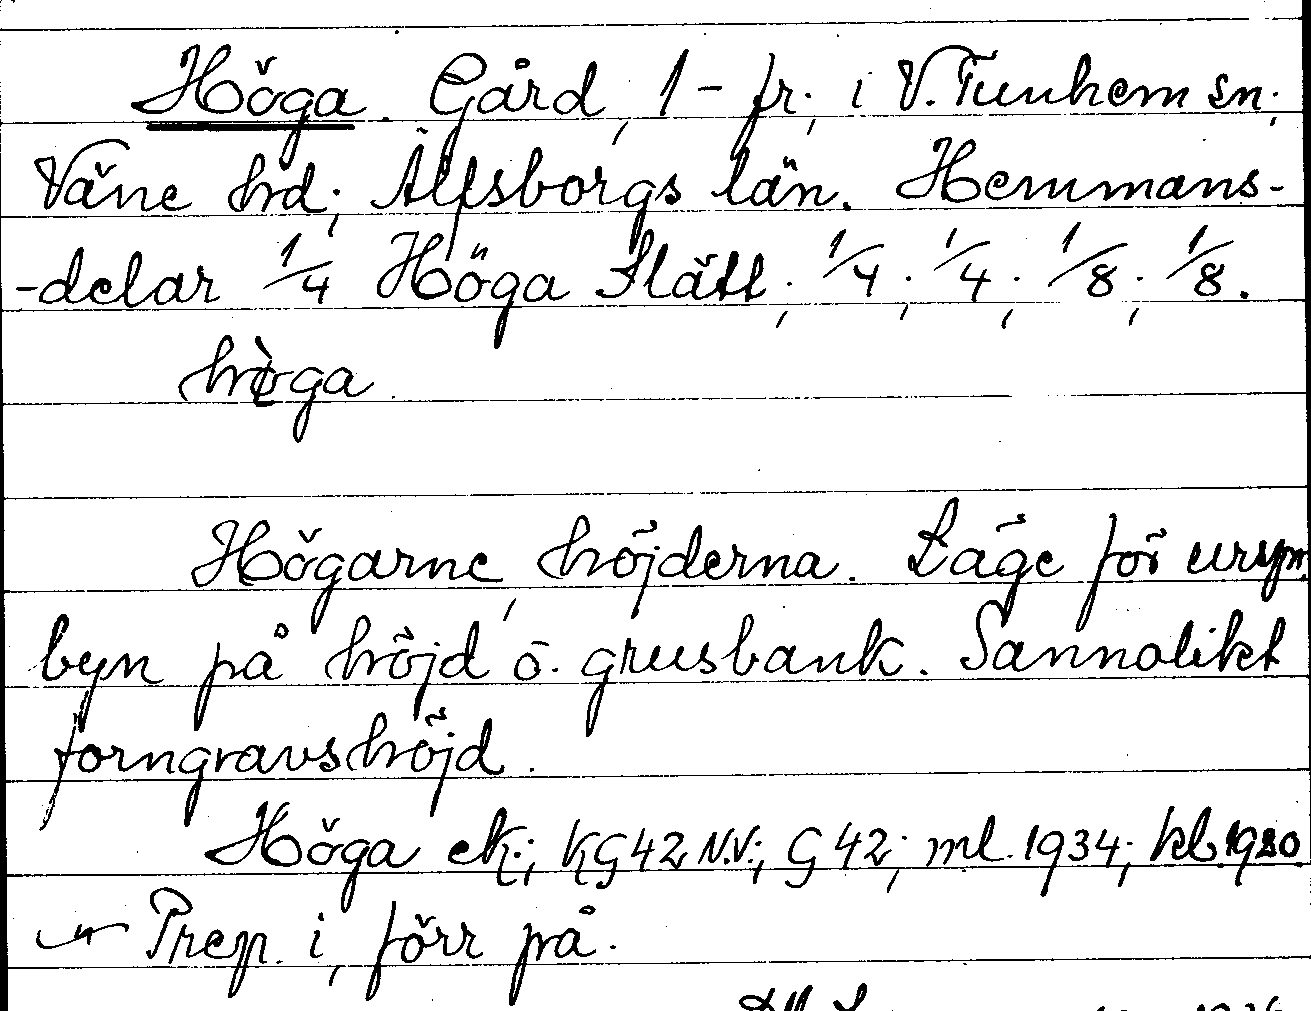 Höga. Gård, 1-fr; i V. Tunhem sn;
Väne hd; Älfsborgs län. Hemmans-
-delar 1/4 Höga Slätt; 1/4; 1/4; 1/8; 1/8.
Högarne, höjderna. Läge för urspr.
byn på höjd o. grusbank. Sannolikt
forngravshöjd.
Höga ek.; KG 42 N.V.; G 42; ml. 1934; kl. 1920
Prep. i, förr på.